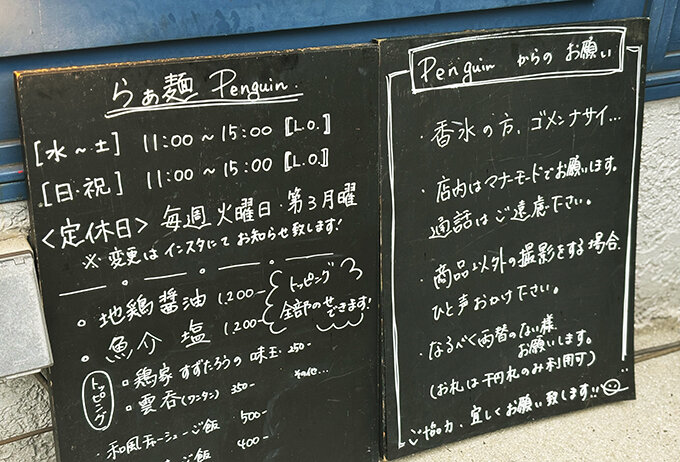 らぁ麺 Penguin.
[水～土] 11:00～15:00 [L.O.]
[日・祝] 11:00～15:00 [L.O.]
<定休日> 毎週 火曜日・第3月曜
※ 変更は インスタにて お知らせ致します!
・地鶏醤油 1,200-
・魚介 塩 1,200-
トッピング
全部のせできます!
トッピング
・鶏家 すずたろうの 味玉 250-
・雲呑(ワンタン) 350-
・和風チャーシューご飯 500-
ご飯 400-
Penguin からの お願い
・香水の方、ゴメンナサイ...
・店内はマナーモードでお願います。
通話はご遠慮下さい。
・商品以外の撮影をする場合、
ひと声おかけ下さい。
・なるべく両替のない様、
お願いします。
(お札は千円札のみ利用可)
ご協力、宜しくお願い致します